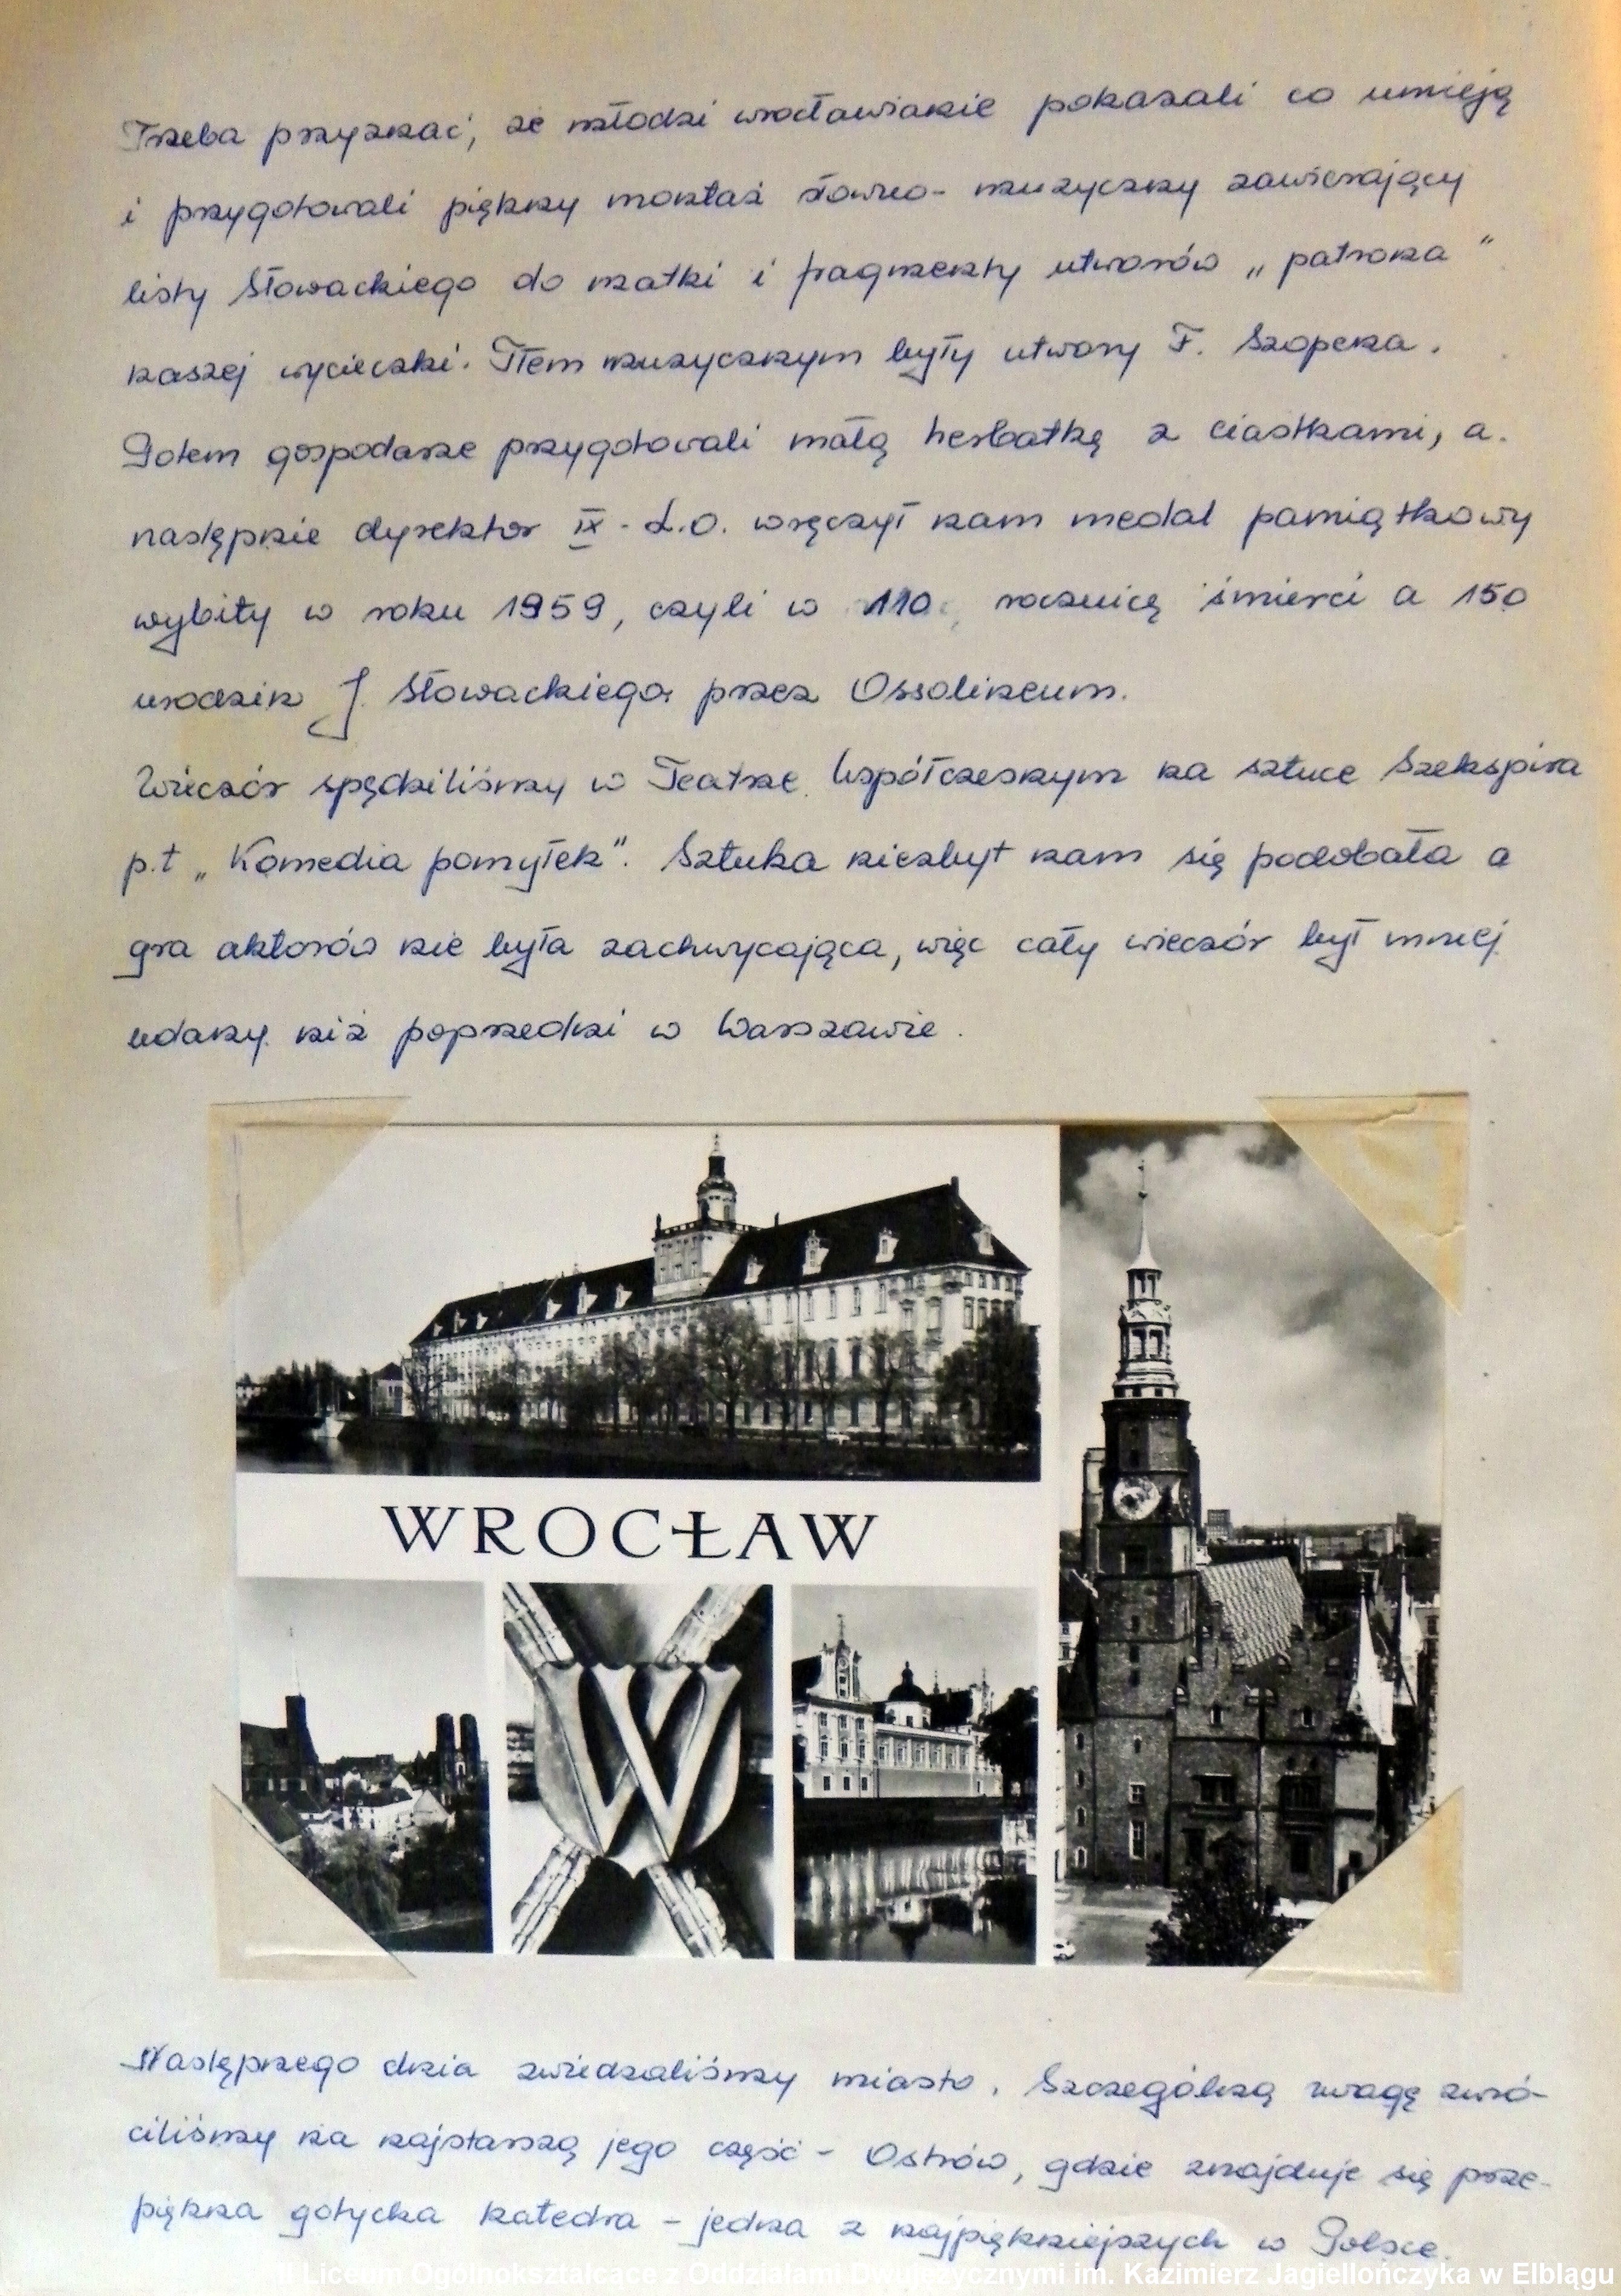 Trzeba przyznać, że młodzi wrocławianie pokazali co umieją
i przygotowali piękny montaż słowno-muzyczny zawierający
listy Słowackiego do matki i fragmenty utworów „patrona"
naszej wycieczki. Tłem muzycznym były utwory F. Szopena.
Potem gospodarze przygotowali małą herbatkę z ciastkami, a
następnie dyrektor IX L.O. wręczył nam medal pamiątkowy
wybity w roku 1959, czyli w 110 rocznicę śmierci a 150
urodzin J. Słowackiego przez Ossolineum.
Wieczór spędziliśmy w Teatrze Współczesnym na sztuce Szekspira
p.t „Komedia pomyłek". Sztuka niezbyt nam się podobała a
gra aktorów nie była zachwycająca, więc cały wieczór był mniej
udany niż poprzedni w Warszawie.
WROCŁAW
W
Następnego dnia zwiedzaliśmy miasto. Szczególną uwagę zwró-
ciliśmy na najstarszą jego część - Ostrów, gdzie znajduje się prze-
piękna gotycka katedra - jedna z najpiękniejszych w Polsce.
Liceum Ogólnokształcące z Oddziałami Dwujęzycznymi im. Kazimierz Jagiellończyka w Elblągu